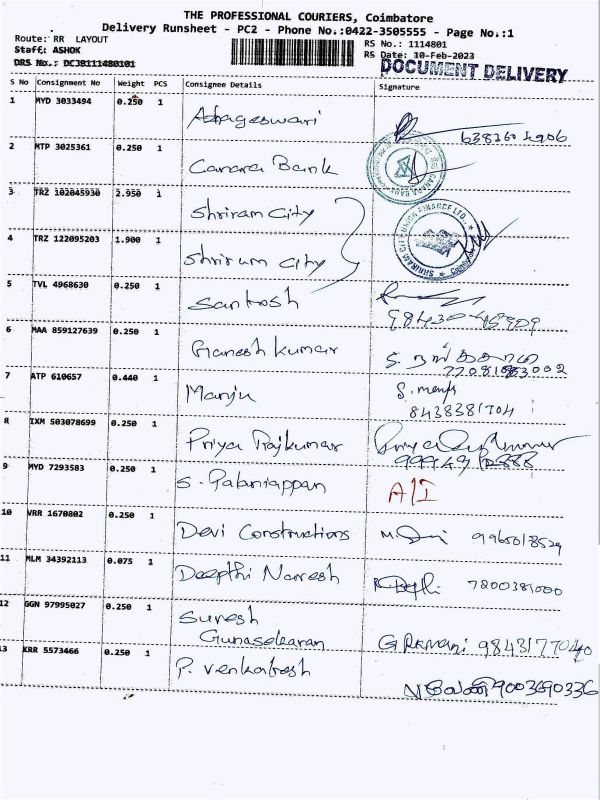 THE PROFESSIONAL COURIERS, Coimbatore
Delivery Runsheet - PC2 - Phone No.:0422-3505555 - Page No.:1
Route: RR LAYOUT RS No.: 1114801
Staff: ASHOK RS Date: 10-Feb-2023
DRS No.: DCJB111480101 DOCUMENT DELIVERY
S No Consignment No Weight PCS Consignee Details Signature
1 MYD 3033494 0.250 1
2 MTP 3025361 0.250 1 Canara Bank
3 TRZ 102045930 2.950 1 Shriram City
SHRIRAM CITY UNION FINANCE LTD.
4 TRZ 122095203 1.900 1 Shriram city
5 TVL 4968630 0.250 1 Santosh
6 MAA 859127639 0.250 1 Ganesh kumar
7 ATP 610657 0.440 1 Manju
8438381704
8 IXM 503078699 0.250 1 Priya Rajkumar
9 MYD 7293583 0.250 1 S. Palaniappan A/I
10 VRR 1670802 0.250 1 Devi Constructions
11 MLM 34392113 0.075 1 Deepthi Naresh 7200381000
12 GGN 97995027 0.250 1 Suresh
Gunasekaran
13 KRR 5573466 0.250 1 P. Venkatesh
9003690336